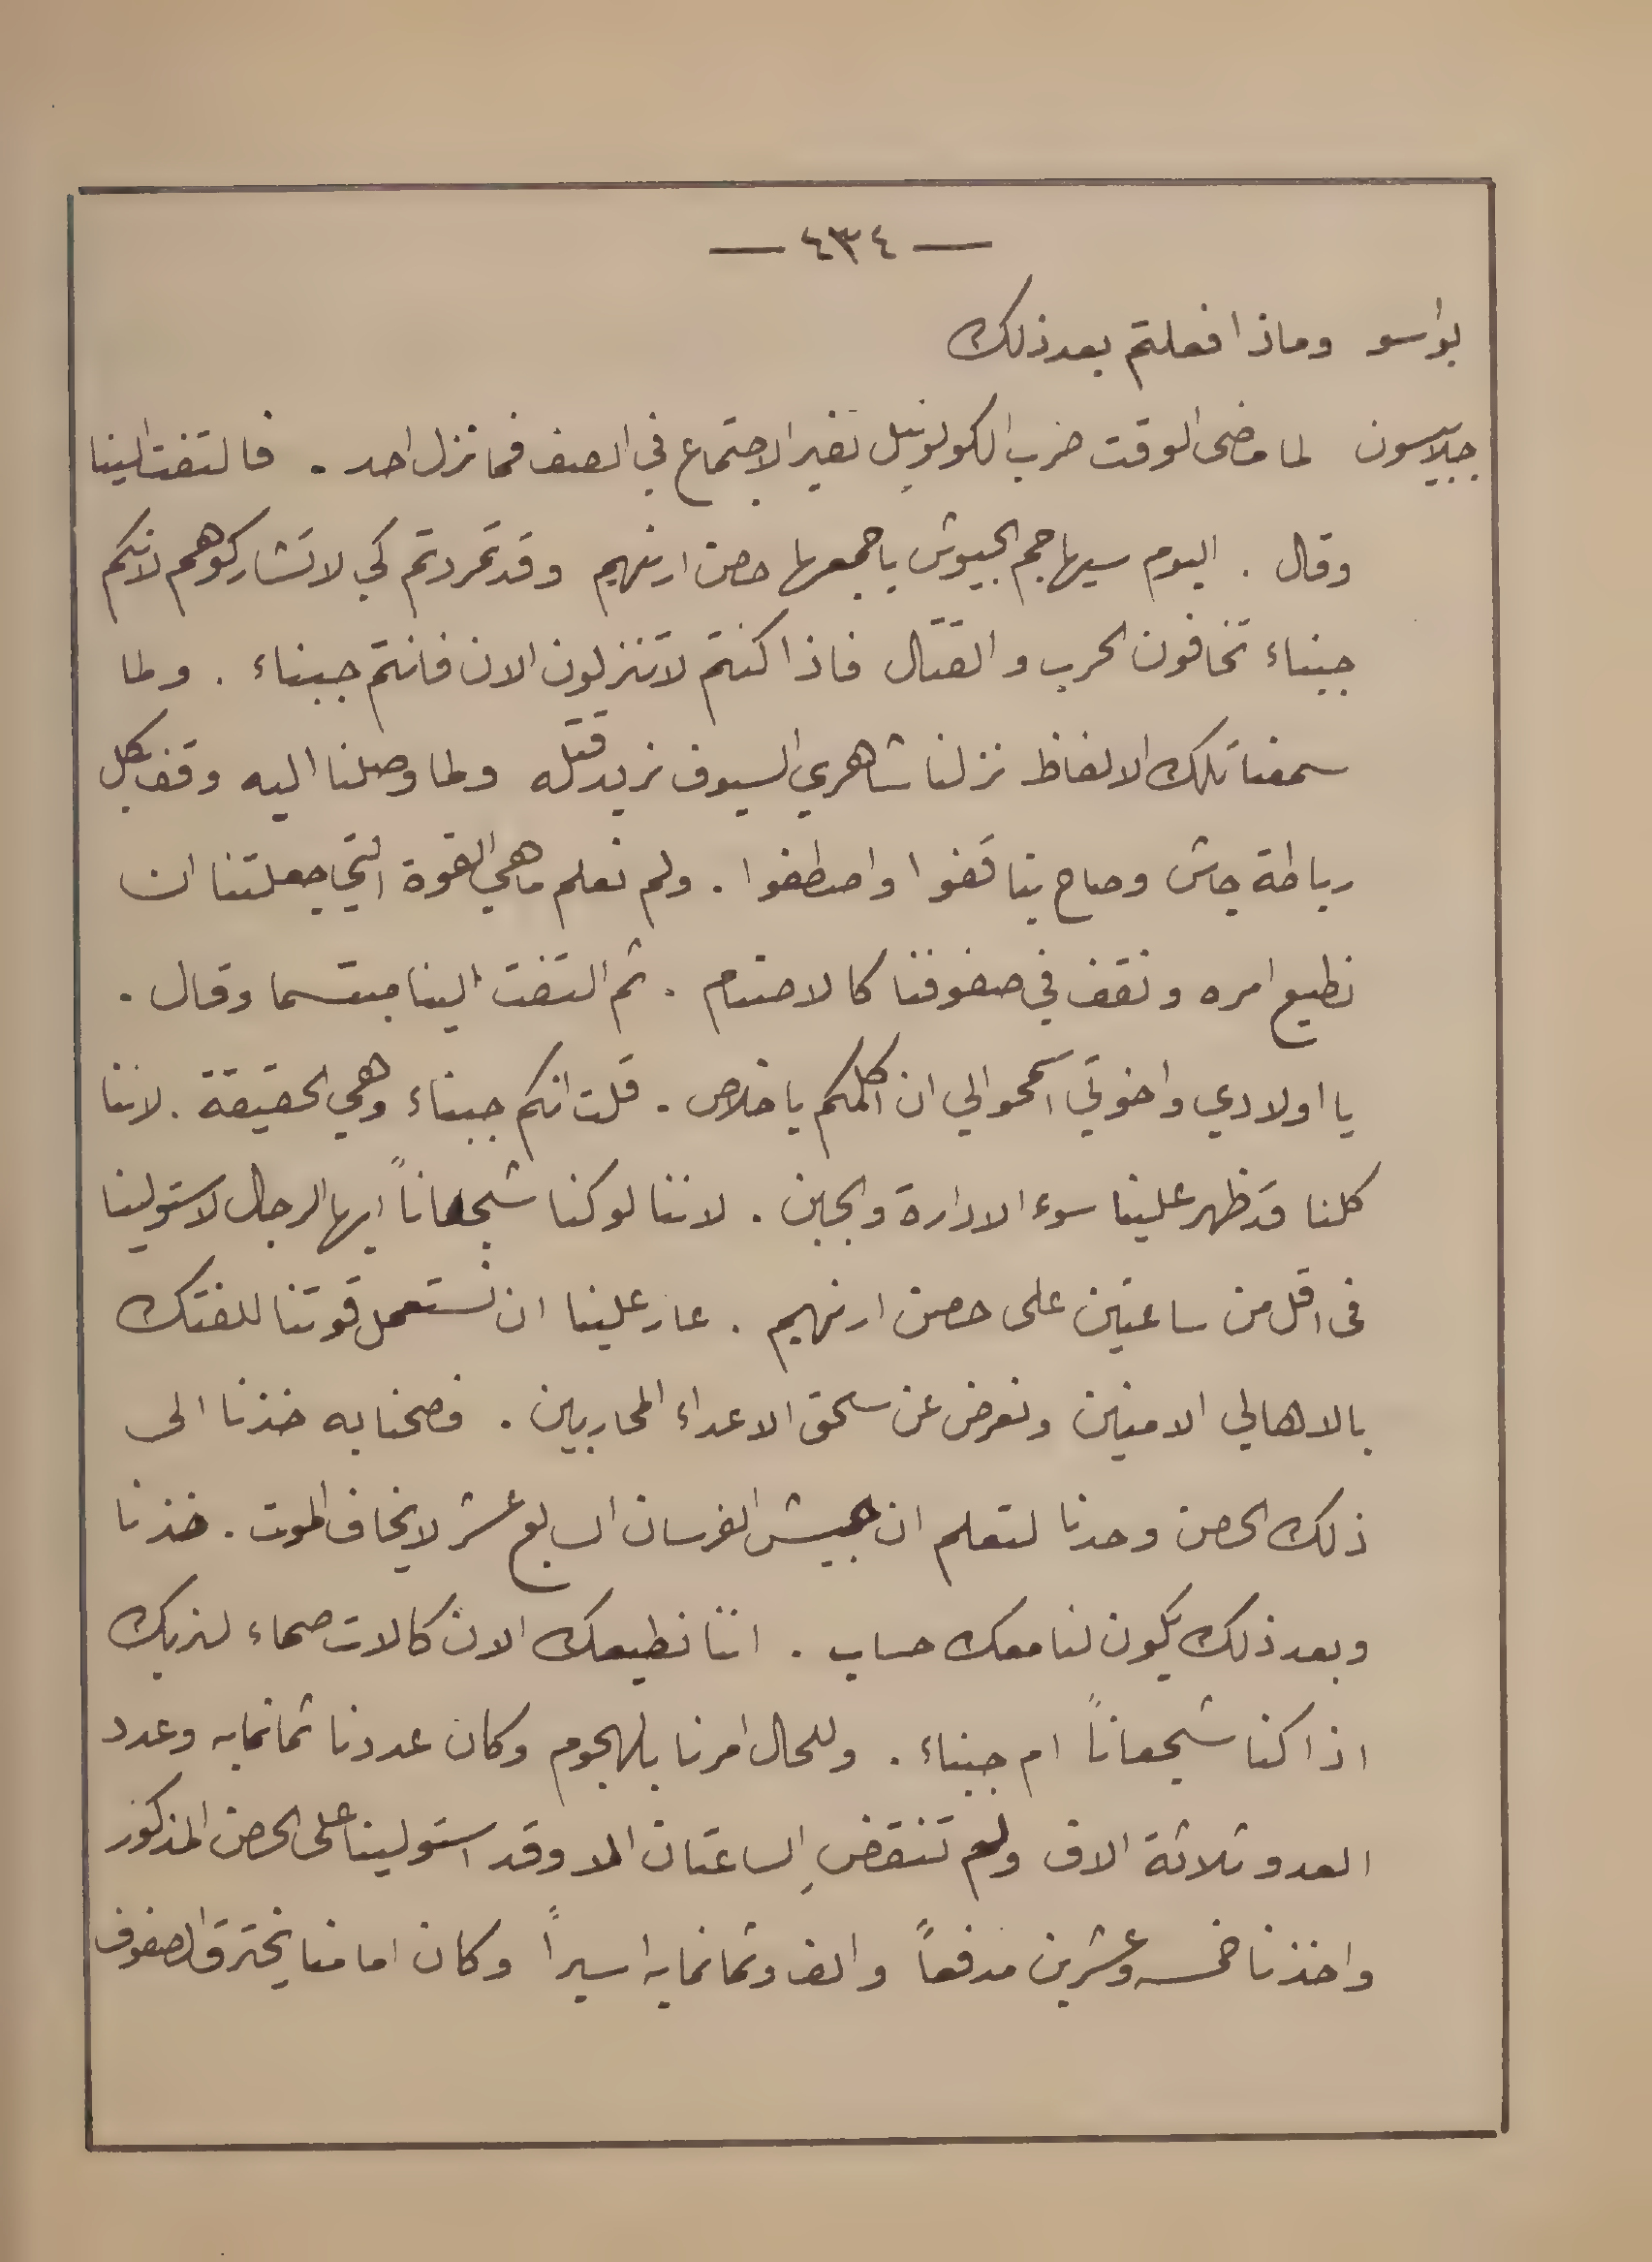 — ٤٣٤ —
بواسو وماذا فعلتم بعد ذلك
جلابيسون لما مضى الوقت ضرب الكولونيل نفير الاجتماع في الصف فما نزل احد . فالتفت الينا
وقال . اليوم سيهاجم الجيوش باجمعها حصن ارنهيم وقد تمردتم كي لا تشاركوهم لانكم
جبناء تخافون الحرب والقتال فاذا كنتم لا تنزلون الان فانتم جبناء . ولما
سمعنا تلك الالفاظ نزلنا شاهري السيوف نريد قتله ولما وصلنا اليه وقف بكل
رباطة جاش وصاح بنا قفوا واصطفوا . ولم نعلم ما هي القوة التي جعلتنا ان
نطيع امره ونقف في صفوفنا كالاصنام . ثم التفت الينا مبتسما وقال .
يا اولادي واخوتي اسمحوا لي ان اكلمكم باخلاص . قلت انكم جبناء وهي الحقيقة . لاننا
كلنا قد ظهر علينا سوء الادارة والجبن . لاننا لو كنا شجعاناً ايها الرجال لاستولينا
فى اقل من ساعتين على حصن ارنهيم . عار علينا ان نستعمل قوتنا للفتك
بالاهالي الامنين ونعرض عن سحق الاعداء المحاربين . فصحنا به خذنا الى
ذلك الحصن وحدنا لتعلم ان جيش الفرسان السابع عشر لا يخاف الموت . خذنا
وبعد ذلك يكون لنا معك حساب . اننا نطيعك الان كالات صماء لنريك
اذا كنا شجعاناً ام جبناء . وللحال امرنا بالهجوم وكان عددنا ثمانمايه وعدد
العدو ثلاثة الاف ولم تنقضِ الساعتان الا وقد استولينا على الحصن المذكور
واخذنا خمسه وعشرين مدفعاً والف وثمانمايه اسيراً وكان امامنا يخترق الصفوف